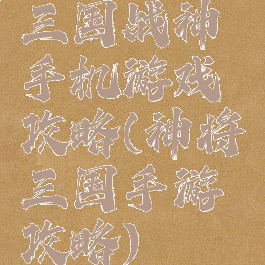 三国战神
手机游戏
攻略(神将
三国手游
攻略)